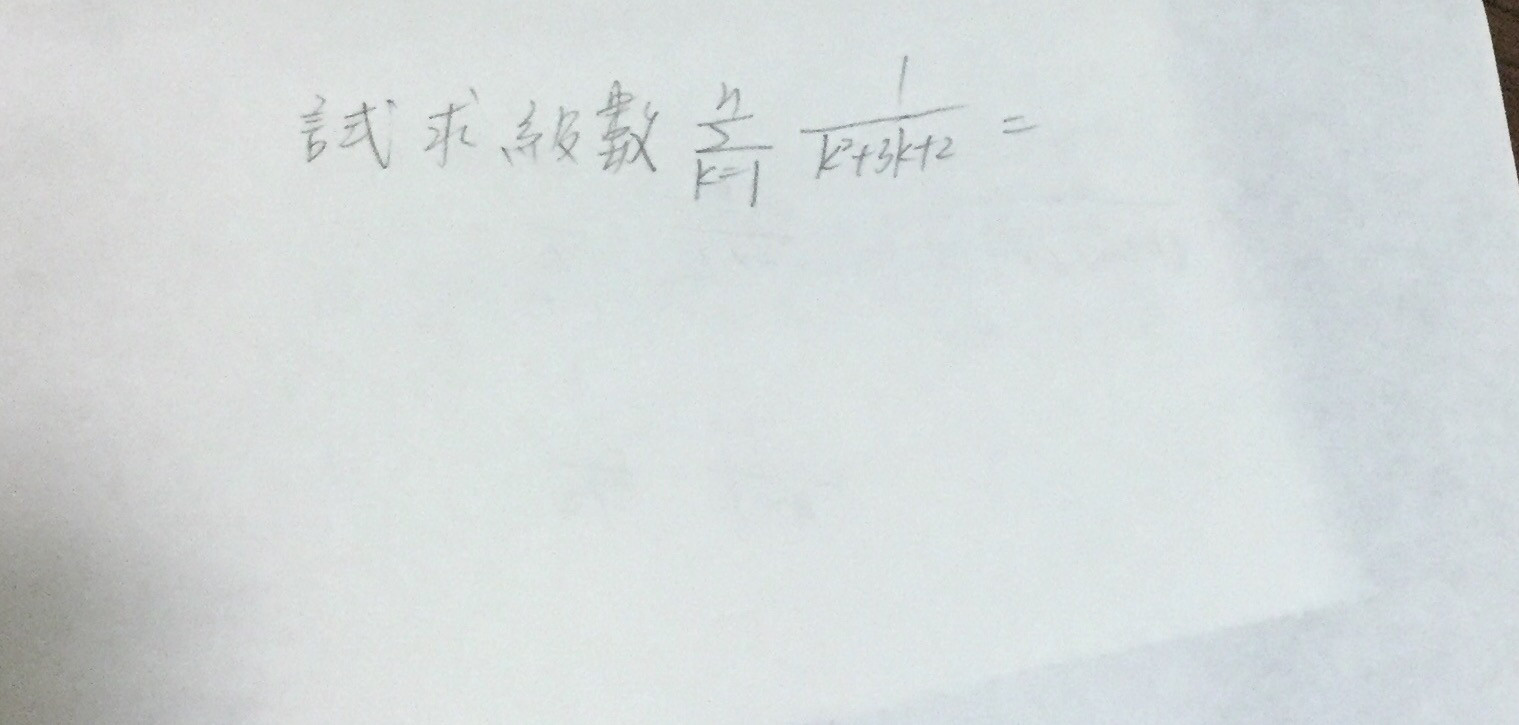 試求級數 $\sum_{k=1}^{n} \frac{1}{k^2+3k+2} =$